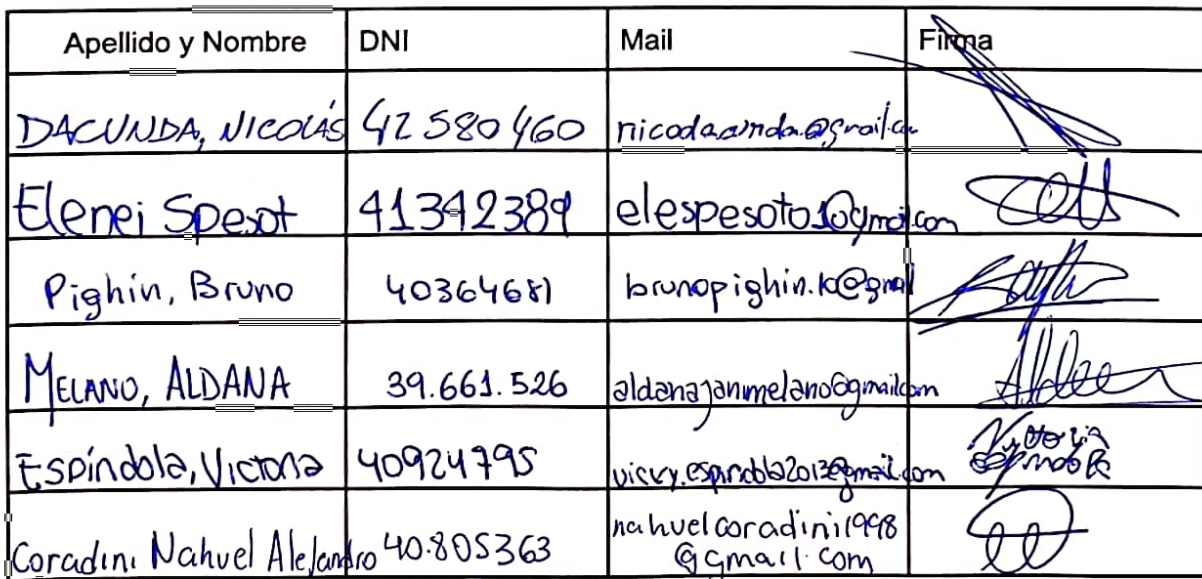 Apellido y Nombre DNI Mail Firma
DACUNDA, NICOLÁS 42 580 460 nicodacunda@gmail.com
Elenei Spesot 41342389 elespesoto10@gmail.com
Pighin, Bruno 40364681 brunopighin.k@gmail
MELANO, ALDANA 39.661.526 aldanajanmelano@gmail.com
Espíndola, Victoria 40924795 vicky.espindola2013@gmail.com
Victoria
Espindola
Coradini Nahuel Alejandro 40.805363 nahuelcoradini1998
@gmail.com